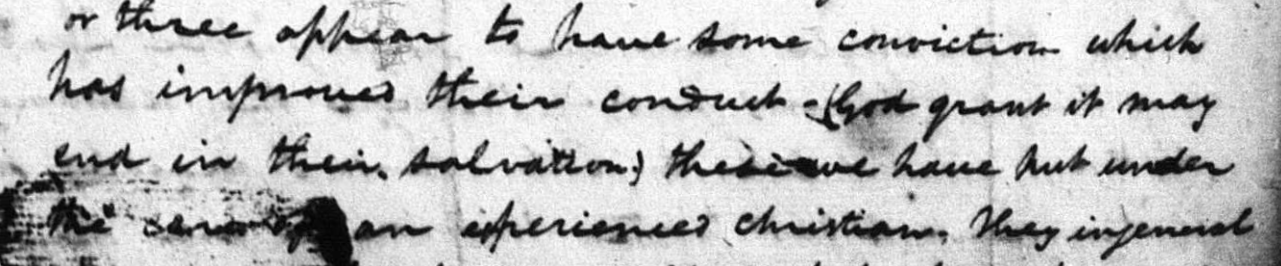 or three appear to have some conviction which
has improved their conduct - (God grant it may
end in their salvation) these we have put under
the care of an experienced Christian. They in general